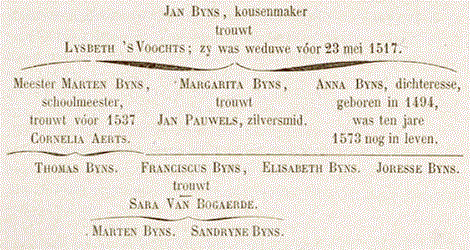 Jan Byns, kousenmaker
trouwt
Lysbeth 's Voochts; zy was weduwe vóor 23 mei 1517.
Meester Marten Byns, Margarita Byns, Anna Byns, dichteresse,
schoolmeester, trouwt geboren in 1494,
trouwt vóor 1537 Jan Pauwels, zilversmid. was ten jare
Cornelia Aerts. 1573 nog in leven.
Thomas Byns. Franciscus Byns, Elisabeth Byns. Joresse Byns.
trouwt
Sara Van Bogaerde.
Marten Byns. Sandryne Byns.